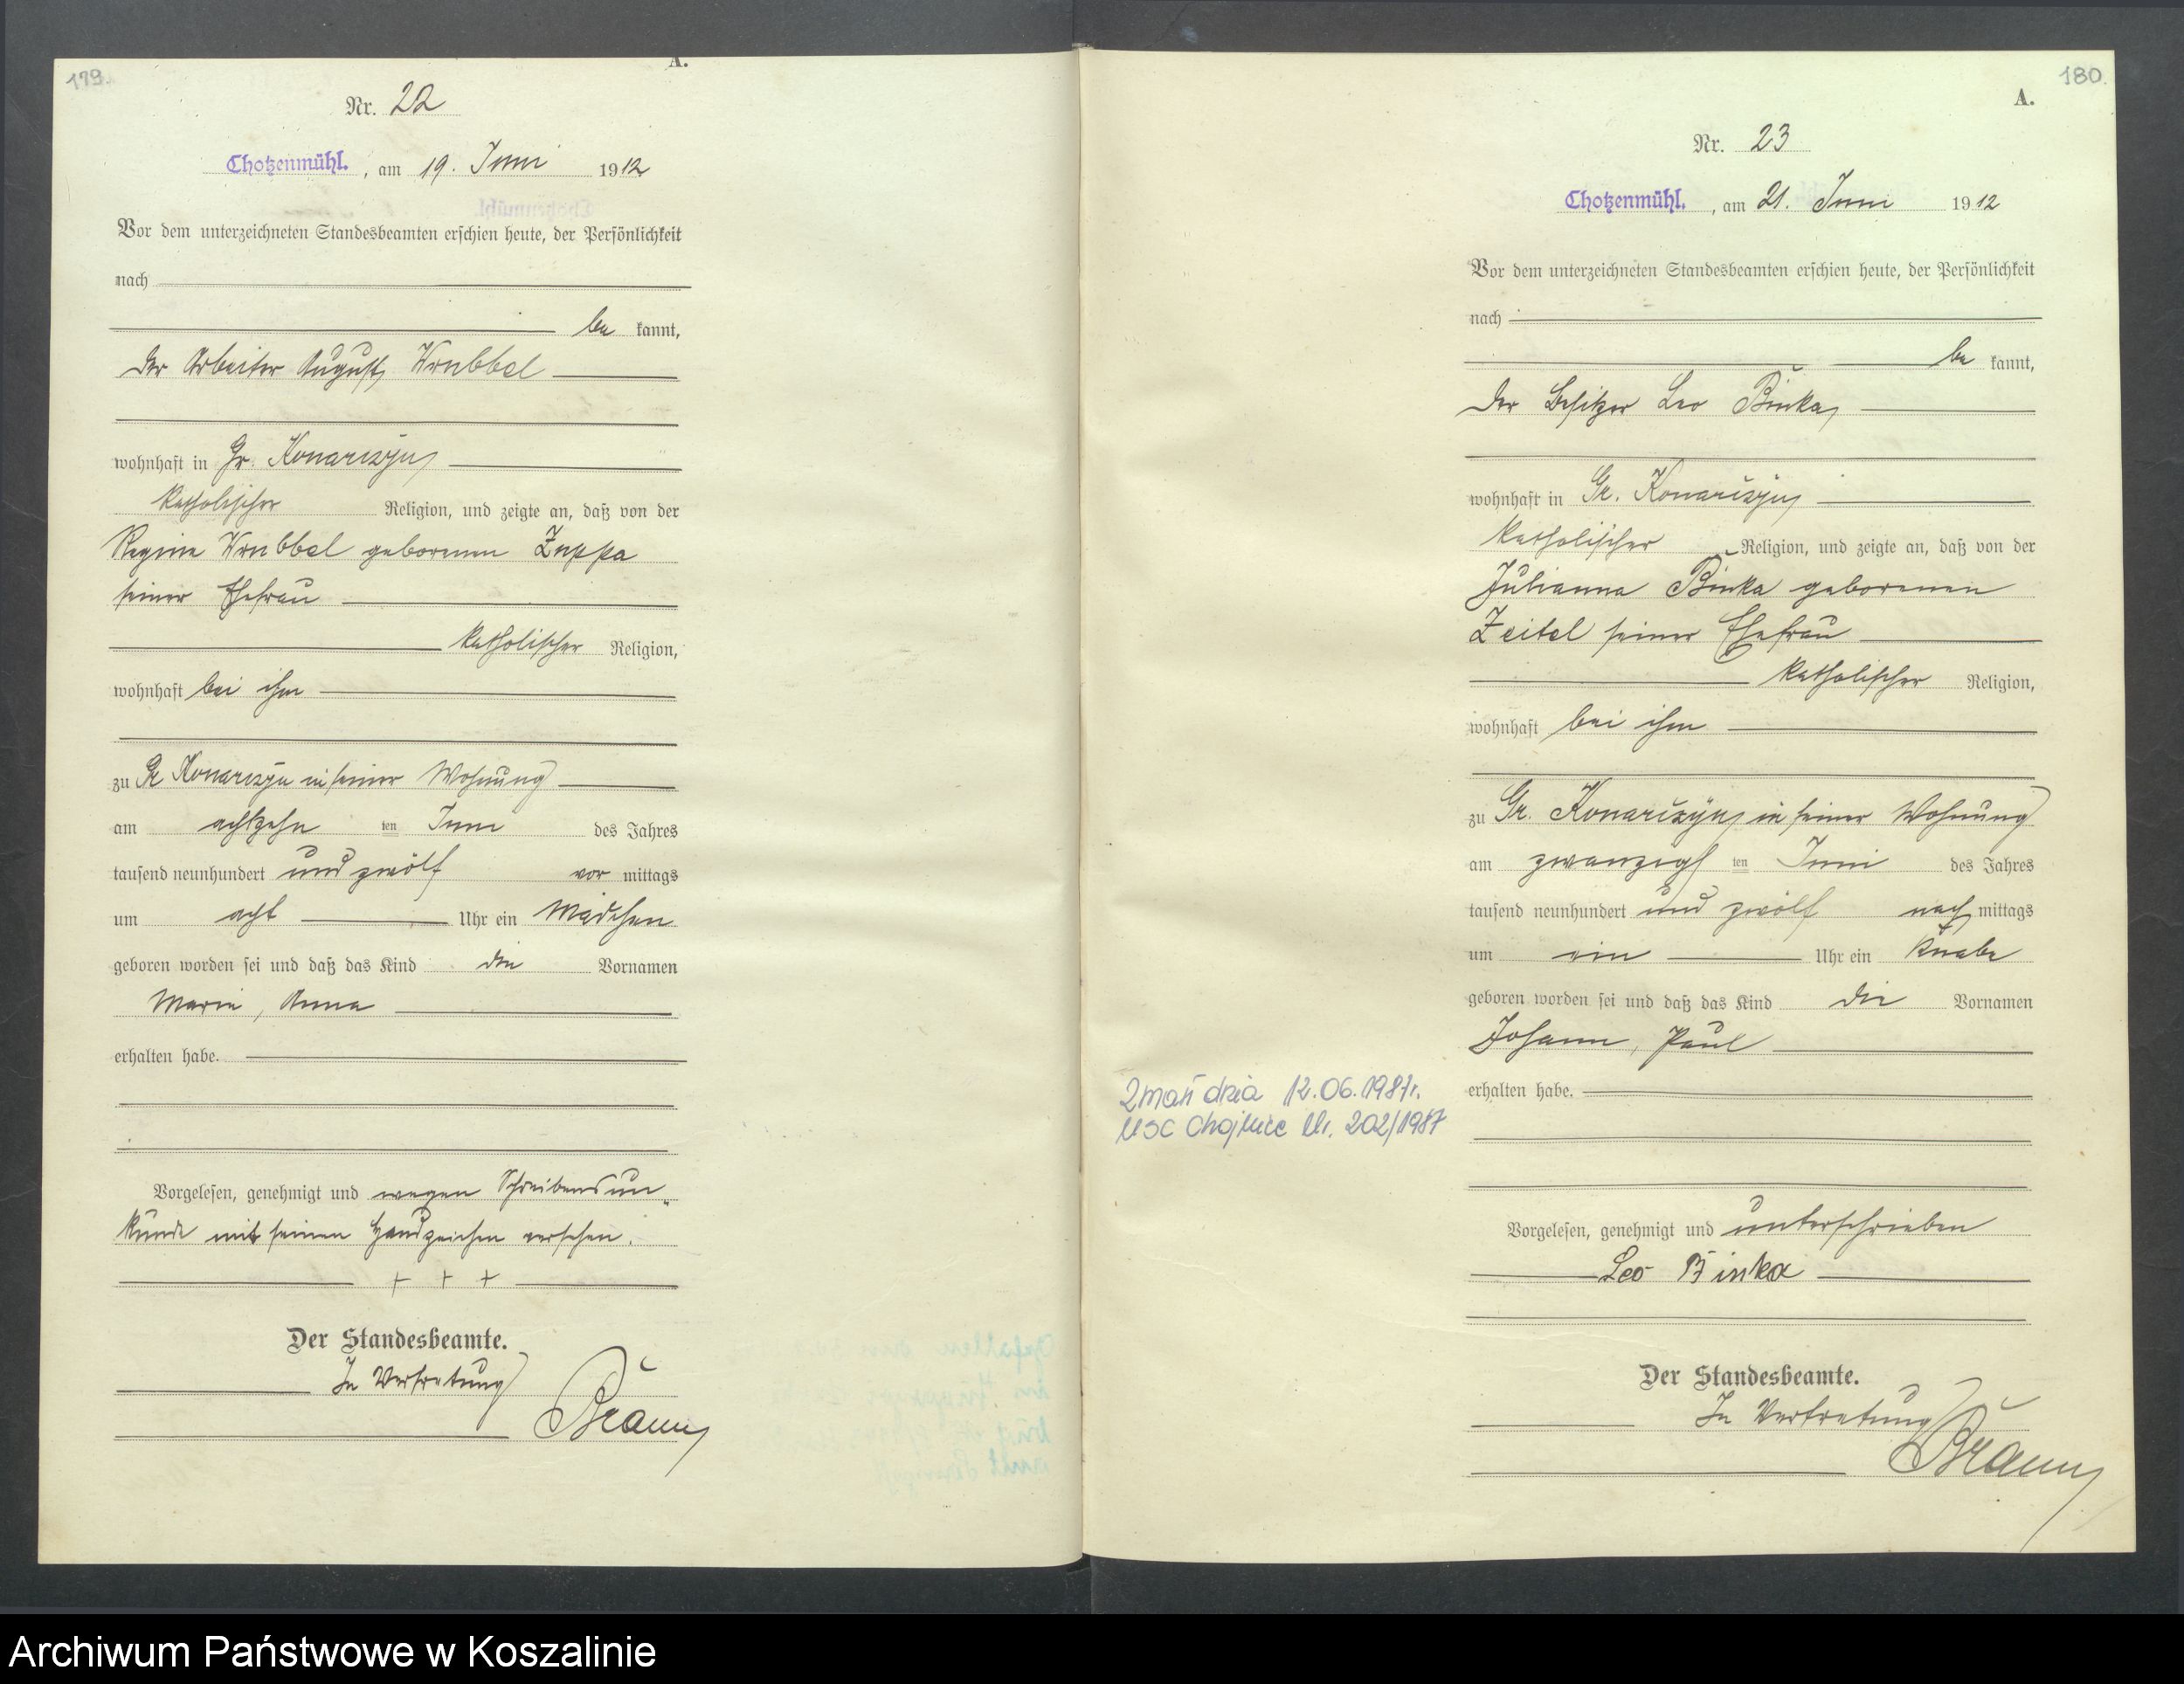 179.
A.
Nr. 22
Chotzenmühl. , am 19. Juni 1912
Vor dem unterzeichneten Standesbeamten erschien heute, der Persönlichkeit
nach
be kannt,
der Arbeiter August Wrubbel
wohnhaft in Gr. Konarczyn
katholischer Religion, und zeigte an, daß von der
Regina Wrubbel geborenen Zuppa
seiner Ehefrau
katholischer Religion,
wohnhaft bei ihm
zu Gr Konarczyn in seiner Wohnung
am achtzehn ten Juni des Jahres
tausend neunhundert und zwölf vor mittags
um acht Uhr ein Mädchen
geboren worden sei und daß das Kind die Vornamen
Maria, Anna
erhalten habe.
Vorgelesen, genehmigt und wegen Schreibensun„
kunde mit seinen Handzeichen versehen.
+ + +
Der Standesbeamte.
In Vertretung
Braun
180.
A.
Nr. 23
Chotzenmühl. , am 21. Juni 1912
Vor dem unterzeichneten Standesbeamten erschien heute, der Persönlichkeit
nach
be kannt,
der Besitzer Leo Binka
wohnhaft in Gr. Konarczyn
katholischer Religion, und zeigte an, daß von der
Julianna Binka geborenen
Zeitel seiner Ehefrau
katholischer Religion,
wohnhaft bei ihm
zu Gr. Konarczyn in seiner Wohnung
am zwanzigs ten Juni des Jahres
tausend neunhundert und zwölf nach mittags
um ein Uhr ein Knabe
geboren worden sei und daß das Kind die Vornamen
Johann, Paul
erhalten habe.
Zmarł dnia 12.06.1987r.
USC Chojnice Nr. 202/1987
Vorgelesen, genehmigt und unterschrieben
Leo Binka
Der Standesbeamte.
In Vertretung
Braun
Archiwum Państwowe w Koszalinie